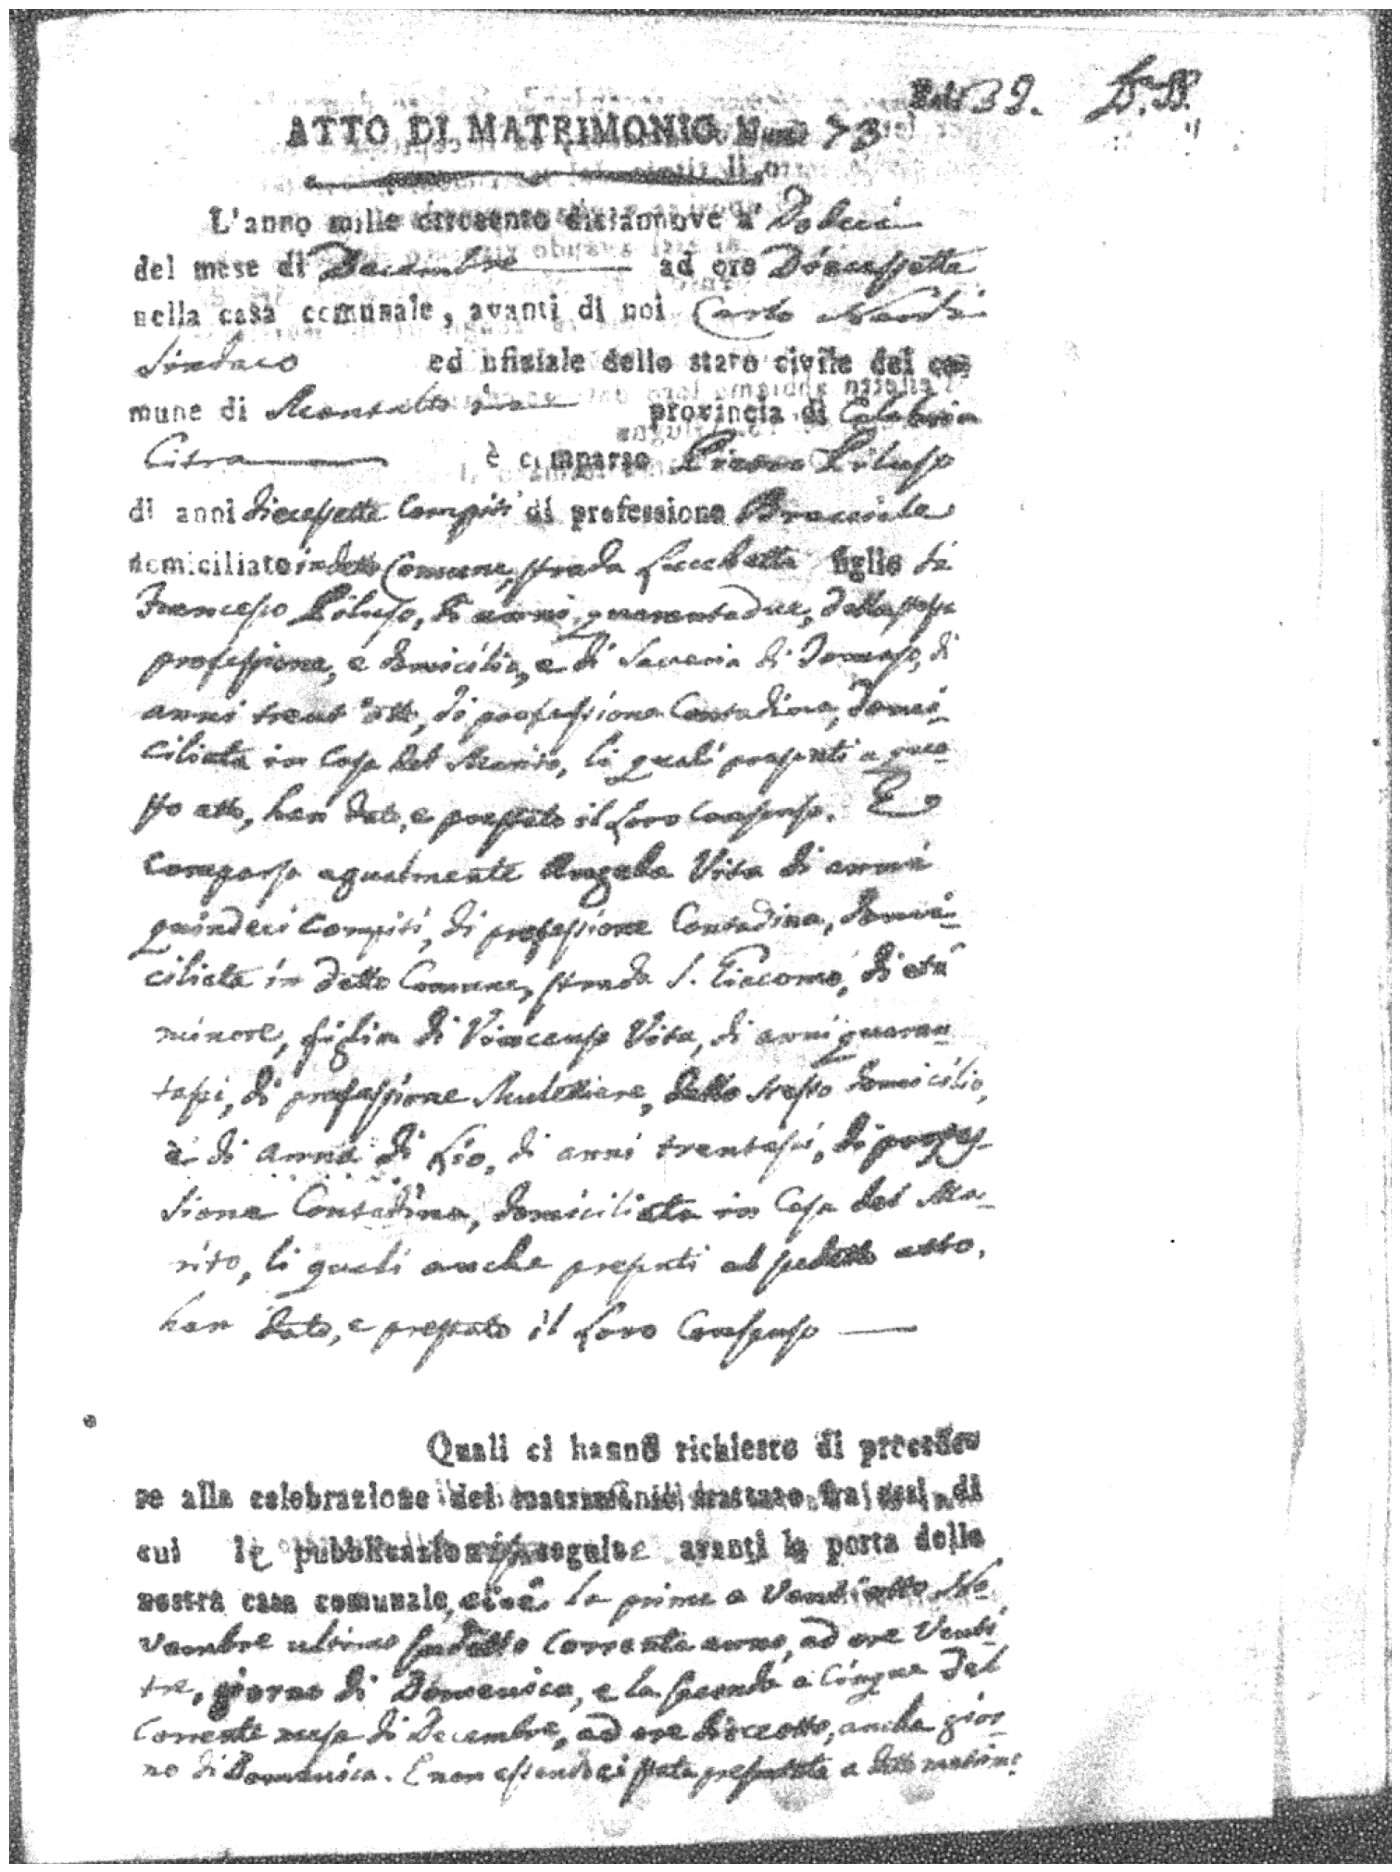 39.
ATTO DI MATRIMONIO Num 73
L'anno mille ottocento diciannove a' Dodeci
del mese di Decembre ad ore Diecessette
nella casa comunale, avanti di noi Carlo Nardi
Sindaco ed ufiziale dello stato civile del co-
mune di Montalto provincia di Calabria
Citra è comparso Piluso
di anni diecessette compiti di professione Bracciale
domiciliato in detto Comune, strada figlio di
Francesco Piluso, di anni quarantadue, della stessa
professione, e domicilio, e di Saveria di Tomaso, di
anni trent'otto, di professione Contadina, domi-
ciliata in Casa del Marito, li quali presenti a que-
sto atto, han dato, e prestato il loro Consenso. E
comparsa egualmente Angela Vita di anni
quindeci compiti, di professione Contadina, domi-
ciliata in detto Comune, strada S. Giacomo, di età
minore, figlia di Vincenzo Vita, di anni quaran-
tasei, di professione Mulettiere, dello stesso domicilio,
e di Anna di Lio, di anni trentasei, di profes-
sione Contadina, domiciliata in Casa del Ma-
rito, li quali anche presenti al sudetto atto,
han dato, e prestato il loro Consenso
Quali ci hanno richiesto di procede-
re alla celebrazione del matrimonio trattato fra essi di
cui le pubblicazioni seguite avanti la porta della
nostra casa comunale, cioè la prima a Ventiotto No-
vembre ultimo sudetto corrente anno, ad ore Venti-
tre, giorno di Domenica, e la seconda a Cinque del
Corrente mese di Decembre, ad ore dieceotto, anche gior-
no di Domenica. E non essendoci stata presentata a detto matrim: